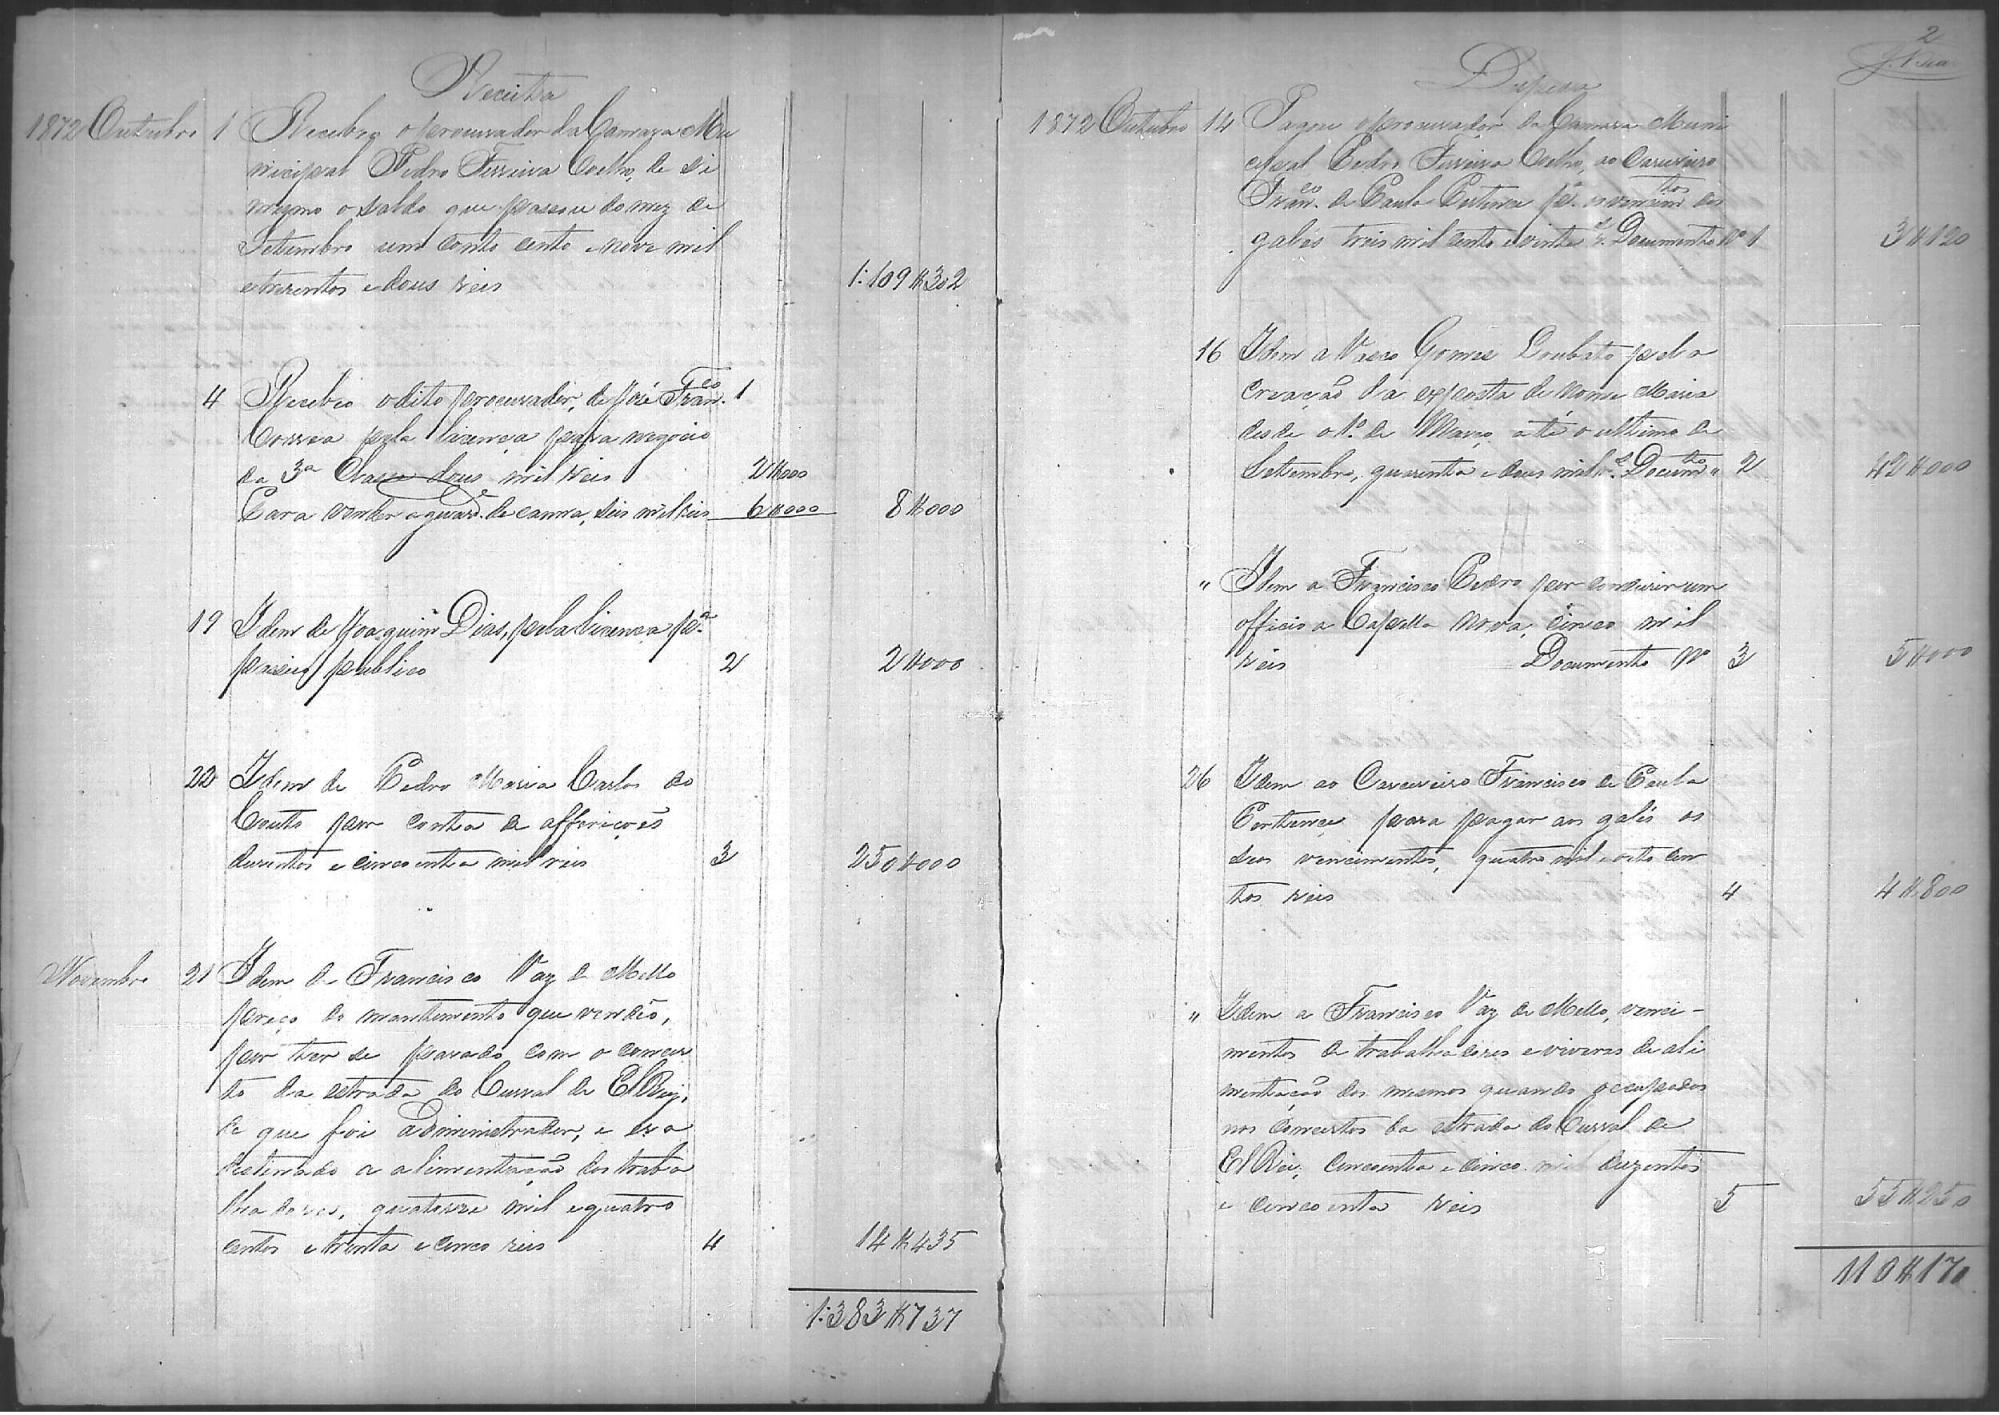 Receita
1872 Outubro 1 Recebeu o procurador da Camara Mu
nicipal Pedro Ferreira Coelho, de si
mesmo o saldo que passou do mez de
Setembro um conto cento e nove mil
e trezentos e dous reis 1:109$302
4 Recebeo o dito procurador, de José Fran.co 1
Correa pela licença para negocio
da 3a Classe dous mil reis 2$000
Para vender aguard.e de canna, seis mil reis 6$000 8$000
19 Idem de Joaquim Dias, pela licença p.a
publico 2 2$000
22 Idem de Pedro Maria Carlos do
Couto por conta de afferições
duzentos e cincoenta mil reis 3 250$000
Novembro 21 Idem de Francisco Vaz de Mello
preço do mantimento que vendeo,
por ter se parado com o concer
to da estrada do Curral de El Rey,
de que foi administrador, e era
destinado a alimentação dos traba
lhadores, quatorze mil e quatro
centos e trinta e cinco reis 4 14$435
1:383$737
2
Despesa
1872 Outubro 14 Pagou o procurador da Camara Muni
cipal Pedro Ferreira Coelho, ao Carcereiro
Fran.co de Paula Pertence p.a os vencim.tos dos
galés tres mil cento e vinte r.s Documento No 1 3$120
16 Idem a Vasco Gomes Loubato pela
creação da exposta de nome Maria
desde o 1o. de Março até o ultimo de
Setembro, quarenta e dous mil r.s Docum.to " 2 42$000
" Idem a Francisco Pedro por conduzir um
officio a Capella nova, cinco mil
reis Documento No 3 5$000
26 Idem ao Carcereiro Francisco de Paula
Pertence para pagar aos galés os
seus vencimentos, quatro mil e oito cen
tos reis 4 4$800
" Idem a Francisco Vaz de Mello, venci-
mentos de trabalhadores e viveres de ali
mentação dos mesmos quando occupados
nos concertos da estrada do Curral de
El Rei, cincoenta e cinco mil duzentos
e cincoenta reis 5 55$250
110$170